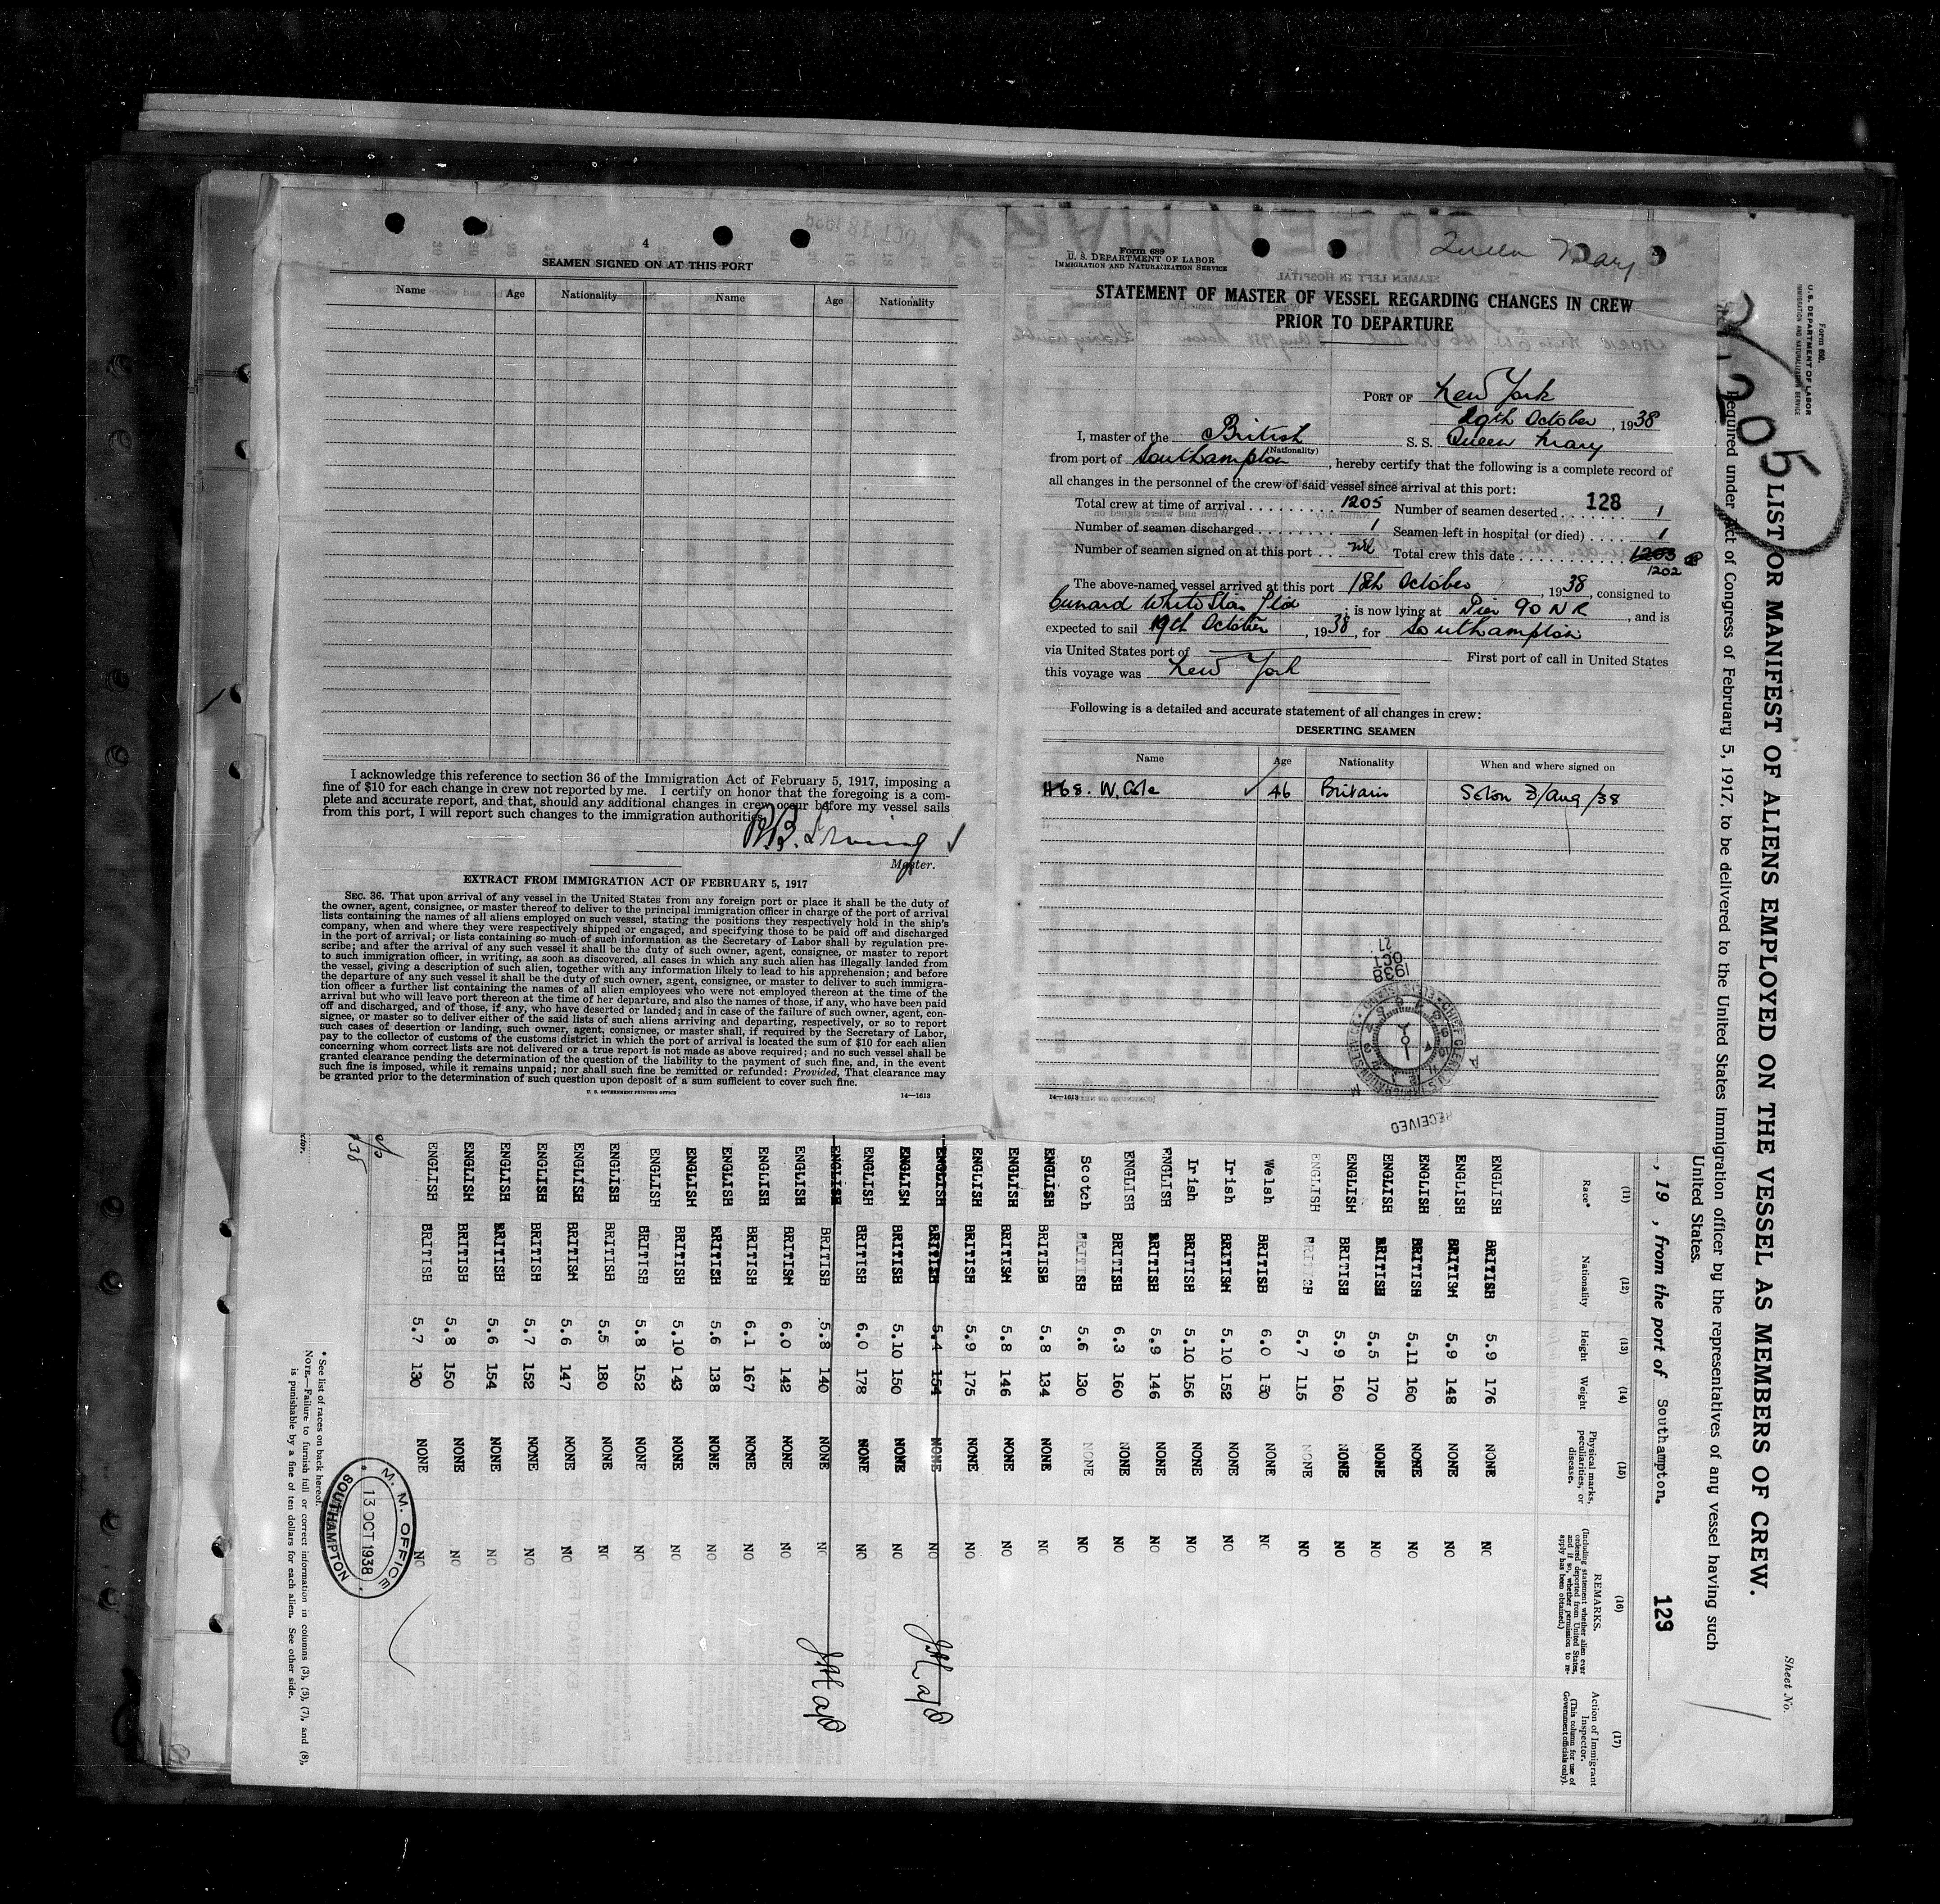 4
SEAMEN SIGNED ON AT THIS PORT
Name Age Nationality Name Age Nationality
I acknowledge this reference to section 36 of the Immigration Act of February 5, 1917, imposing a
fine of $10 for each change in crew not reported by me. I certify on honor that the foregoing is a com-
plete and accurate report, and that, should any additional changes in crew occur before my vessel sails
from this port, I will report such changes to the immigration authorities.
R.B. Irving
Master.
EXTRACT FROM IMMIGRATION ACT OF FEBRUARY 5, 1917
SEC. 36. That upon arrival of any vessel in the United States from any foreign port or place it shall be the duty of
the owner, agent, consignee, or master thereof to deliver to the principal immigration officer in charge of the port of arrival
lists containing the names of all aliens employed on such vessel, stating the positions they respectively hold in the ship's
company, when and where they were respectively shipped or engaged, and specifying those to be paid off and discharged
in the port of arrival; or lists containing so much of such information as the Secretary of Labor shall by regulation pre-
scribe; and after the arrival of any such vessel it shall be the duty of such owner, agent, consignee, or master to report
to such immigration officer, in writing, as soon as discovered, all cases in which any such alien has illegally landed from
the vessel, giving a description of such alien, together with any information likely to lead to his apprehension; and before
the departure of any such vessel it shall be the duty of such owner, agent, consignee, or master to deliver to such immigra-
tion officer a further list containing the names of all alien employees who were not employed thereon at the time of the
arrival but who will leave port thereon at the time of her departure, and also the names of those, if any, who have been paid
off and discharged, and of those, if any, who have deserted or landed; and in case of the failure of such owner, agent, con-
signee, or master so to deliver either of the said lists of such aliens arriving and departing, respectively, or so to report
such cases of desertion or landing, such owner, agent, consignee, or master shall, if required by the Secretary of Labor,
pay to the collector of customs of the customs district in which the port of arrival is located the sum of $10 for each alien
concerning whom correct lists are not delivered or a true report is not made as above required; and no such vessel shall be
granted clearance pending the determination of the question of the liability to the payment of such fine, and, in the event
such fine is imposed, while it remains unpaid; nor shall such fine be remitted or refunded: Provided, That clearance may
be granted prior to the determination of such question upon deposit of a sum sufficient to cover such fine.
U. S. GOVERNMENT PRINTING OFFICE 14—1613
Form 689
U. S. DEPARTMENT OF LABOR
IMMIGRATION AND NATURALIZATION SERVICE
Queen Mary
STATEMENT OF MASTER OF VESSEL REGARDING CHANGES IN CREW
PRIOR TO DEPARTURE
PORT OF New York
19th October, 1938
I, master of the British S. S. Queen Mary
(Nationality)
from port of Southampton, hereby certify that the following is a complete record of
all changes in the personnel of the crew of said vessel since arrival at this port:
128
Total crew at time of arrival 1205 Number of seamen deserted 1
Number of seamen discharged 1 Seamen left in hospital (or died) 1
Number of seamen signed on at this port nil Total crew this date 1203
1202
The above-named vessel arrived at this port 18th October, 1938, consigned to
Cunard White Star Ltd; is now lying at Pier 90 N R, and is
expected to sail 19th October, 1938, for Southampton
via United States port of First port of call in United States
this voyage was New York
Following is a detailed and accurate statement of all changes in crew:
DESERTING SEAMEN
Name Age Nationality When and where signed on
468. W. Cole 46 Britain Soton 3/Aug/38
1938
OCT
21
RECEIVED
14—1613
Form 680.
U. S. DEPARTMENT OF LABOR
IMMIGRATION AND NATURALIZATION SERVICE
Sheet No.
205
LIST OR MANIFEST OF ALIENS EMPLOYED ON THE VESSEL AS MEMBERS OF CREW.
Required under Act of Congress of February 5, 1917, to be delivered to the United States immigration officer by the representatives of any vessel having such
United States.
, 19 , from the port of Southampton.
129
(11) (12) (13) (14) (15) (16) (17)
Race* Nationality Height Weight Physical marks, peculiarities, or disease. REMARKS. (Including statement whether alien ever ordered deported from United States, and if so, whether permission to reapply has been obtained.) Action of Immigrant Inspector. (This column for use of Government officials only).
ENGLISH BRITISH 5.9 176 NONE NO
ENGLISH BRITISH 5.9 148 NONE NO
ENGLISH BRITISH 5.11 160 NONE NO
ENGLISH BRITISH 5.5 170 NONE NO
ENGLISH BRITISH 5.9 160 NONE NO
ENGLISH BRITISH 5.7 115 NONE NO
Welsh BRITISH 6.0 150 NONE NO
Irish BRITISH 5.10 152 NONE NO
Irish BRITISH 5.10 156 NONE NO
ENGLISH BRITISH 5.9 146 NONE NO
ENGLISH BRITISH 6.3 160 NONE NO
Scotch BRITISH 5.6 130 NONE NO
ENGLISH BRITISH 5.8 134 NONE NO
ENGLISH BRITISH 5.8 146 NONE NO
ENGLISH BRITISH 5.9 175 NONE NO
ENGLISH BRITISH 5.4 154 NONE NO
ENGLISH BRITISH 5.10 150 NONE NO
ENGLISH BRITISH 6.0 178 NONE NO
ENGLISH BRITISH 5.8 140 NONE NO
ENGLISH BRITISH 6.0 142 NONE NO
ENGLISH BRITISH 6.1 167 NONE NO
ENGLISH BRITISH 5.6 138 NONE NO
ENGLISH BRITISH 5.10 143 NONE NO
ENGLISH BRITISH 5.8 152 NONE NO
ENGLISH BRITISH 5.5 180 NONE NO
ENGLISH BRITISH 5.6 147 NONE NO
ENGLISH BRITISH 5.7 152 NONE NO
ENGLISH BRITISH 5.6 154 NONE NO
ENGLISH BRITISH 5.8 150 NONE NO
ENGLISH BRITISH 5.7 130 NONE NO
* See list of races on back hereof.
NOTE.—Failure to furnish full or correct information in columns (3), (5), (7), and (8),
is punishable by a fine of ten dollars for each alien. See other side.
M. M. OFFICE
13 OCT 1938
SOUTHAMPTON